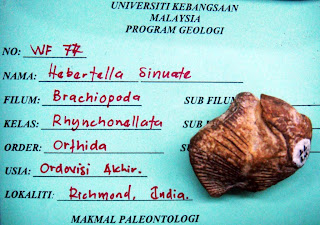 UNIVERSITI KEBANGSAAN
MALAYSIA
PROGRAM GEOLOGI
NO: WF 77
NAMA: Hebertella Sinuate
FILUM: Brachiopoda SUB FILUM
KELAS: Rhynchonellata SUB
ORDER: Orthida
USIA: Ordovisi Akhir.
LOKALITI: Richmond, India.
MAKMAL PALEONTOLOGI